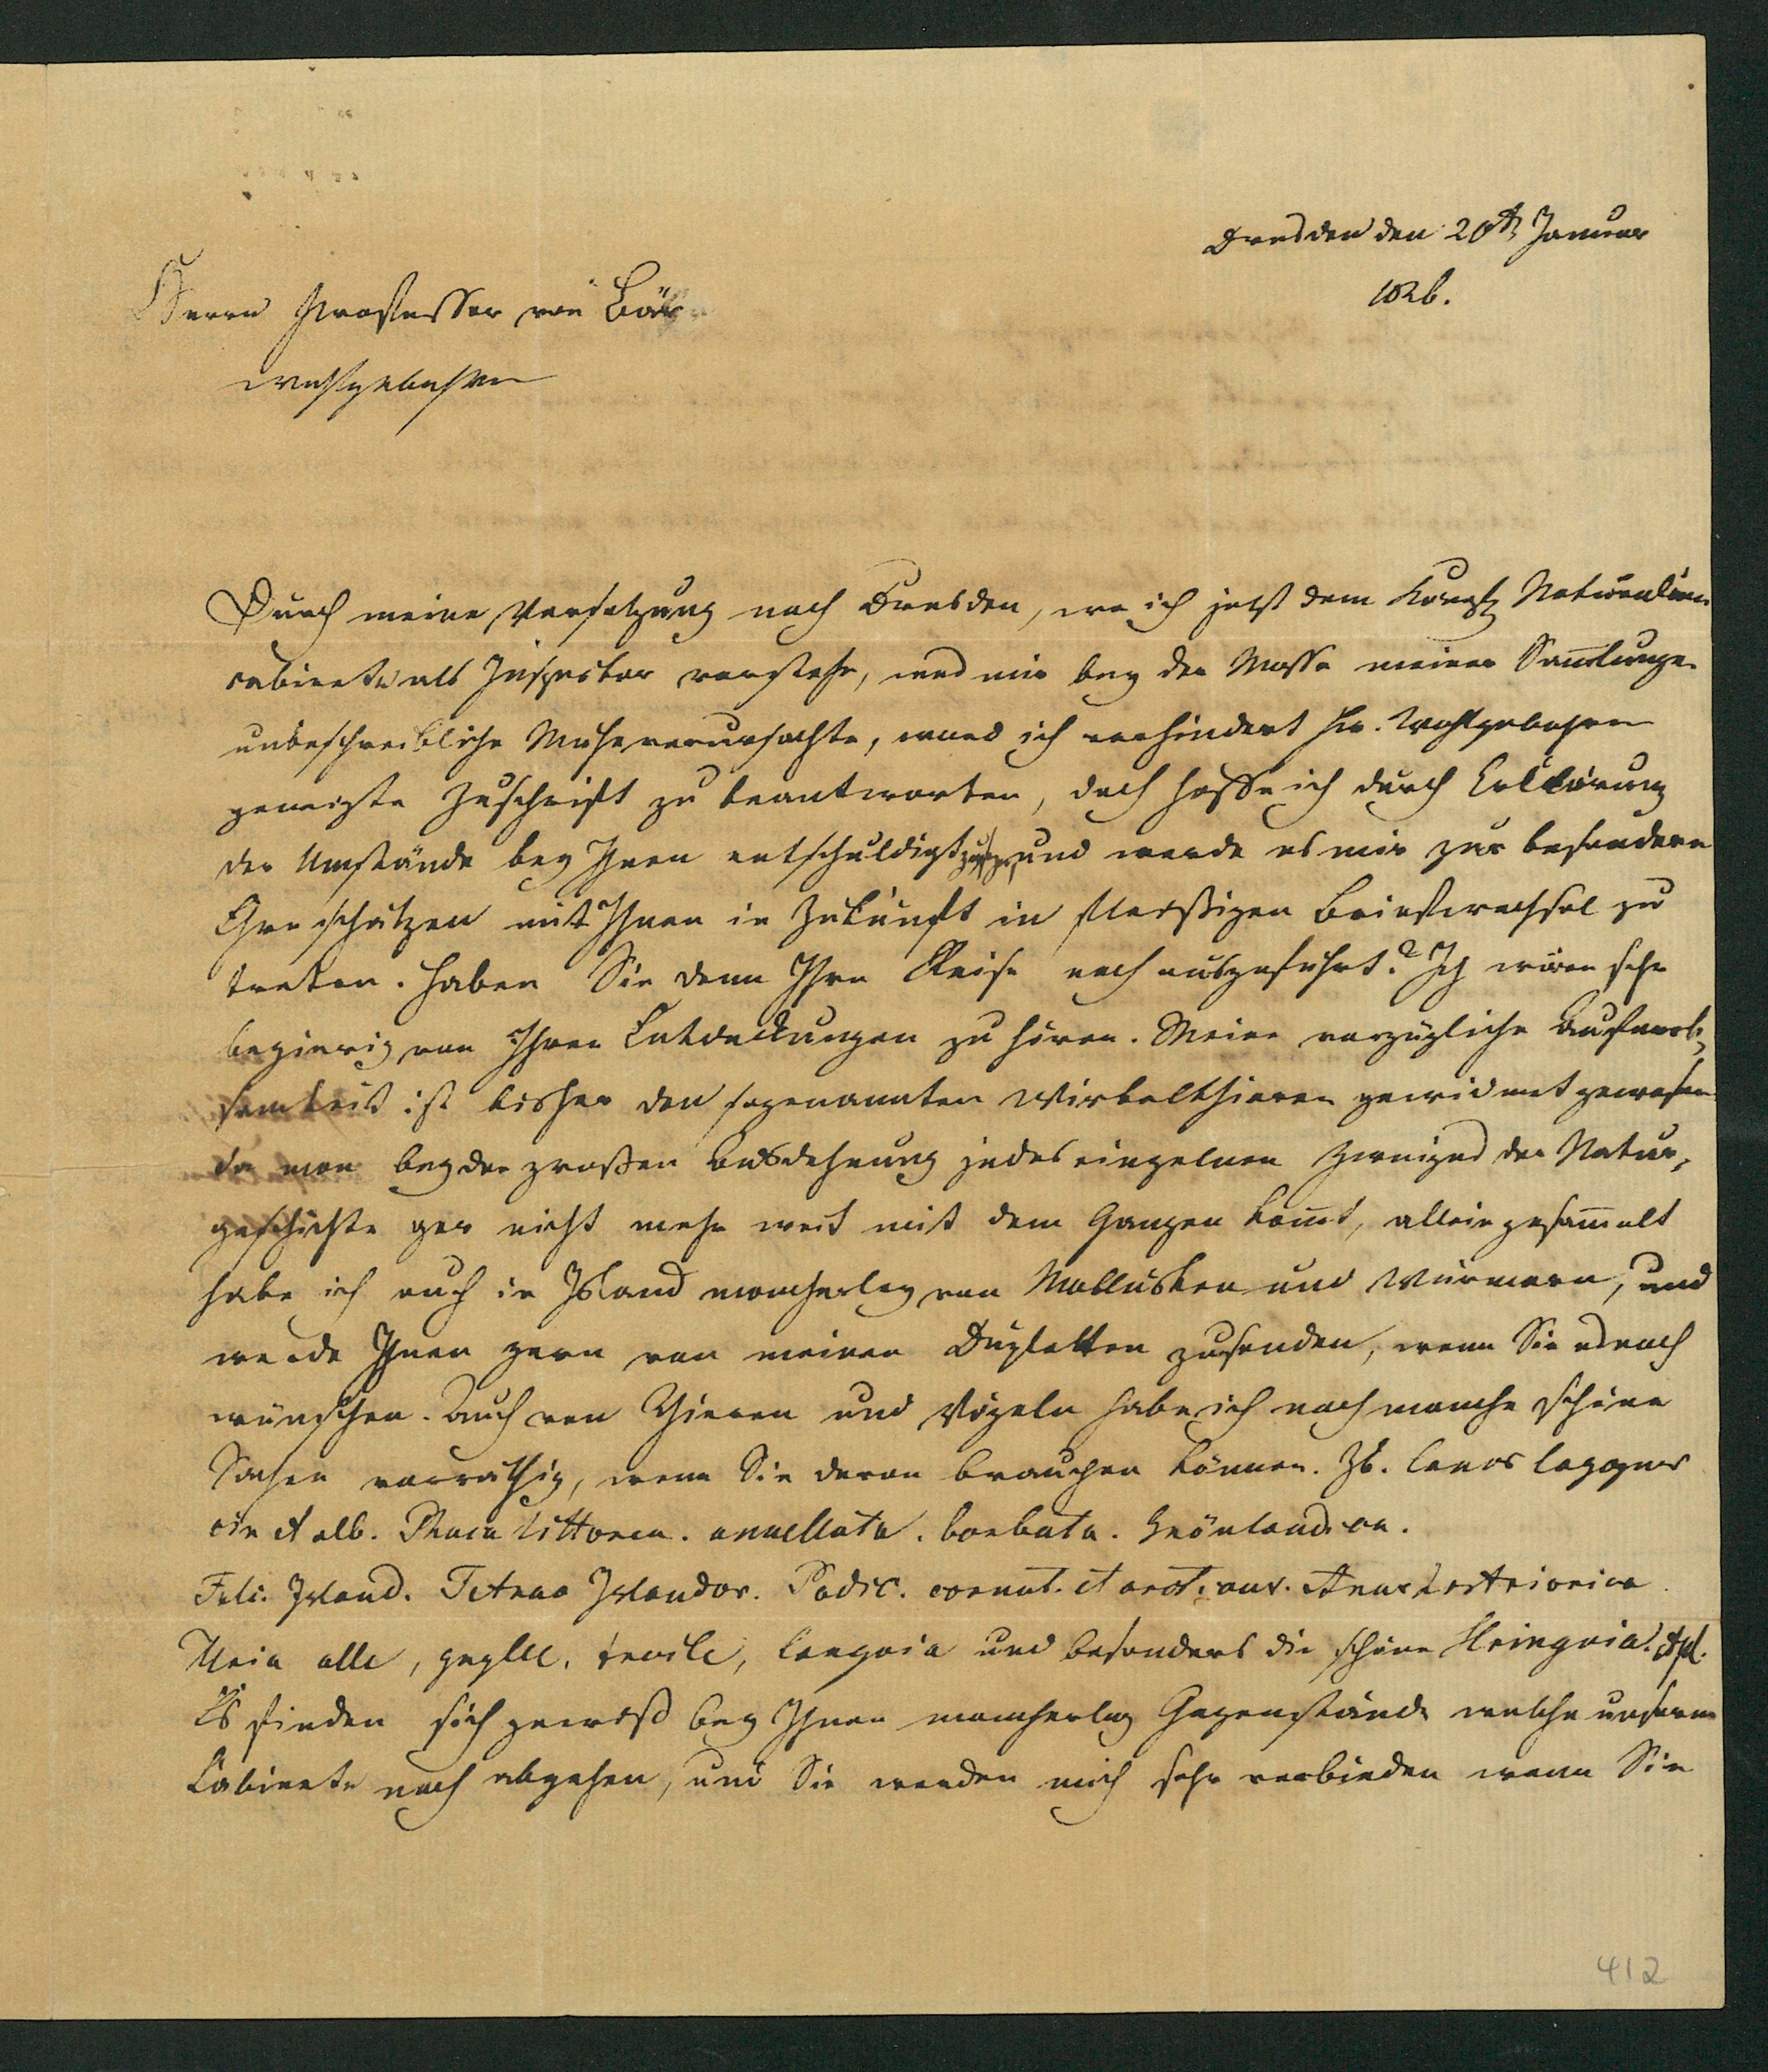 Dresden den 20st Januar
1826.
Herrn Professor von Bär
Wohlgebohren
Durch meine Versetzung nach Dresden, wo ich jetzt dem Königl Naturalien
cabinete als Inspector vorstehe, und mir bey der Masse meiner Samlungen
unbeschreibliche Mühe verursachte, ward ich verhindert Ew. Wohlgebohren
geneigte Zuschrift zu beantworten, doch hoffe ich durch Erklärung
der Umstände bey Ihnen entschuldigt zu seyn und werde es mir zur besondern
Ehre schätzen mit Ihnen in Zukunft in fleißigen Briefwechsel zu
treten. Haben Sie denn Ihre Reise noch ausgeführt? Ich wäre sehr
begierig von Ihren Entdeckungen zu hören. Meine vorzügliche Aufmerk-
samkeit ist bisher den sogenannten Wirbelthieren gewidmet gewesen
da man bey der großen Ausdehnung jedes einzelnen Zweiges der Natur-
geschichte gar nicht mehr weit mit dem Ganzen komt, allein gesammelt
habe ich auch in Island mancherley von Mollusken und Würmern, und
werde Ihnen gern von meinen Dupletten zusenden, wenn Sie es noch
wünschen. Auch von Thieren und Vögeln habe ich noch manche schöne
Sachen vorräthig, wenn Sie davon brauchen können. Zb. Canis lagopus
cin et alb. Phoca littorea. annellata. barbata. Grönlandica.
Falc. Island. Tetrao Islandor. Podic. cornut. et arct. Anas
Uria alle, grylle. troile, langvia und besonders die schöne Hringvia.
Es finden sich gewiß bey Ihnen mancherley Gegenstände welche unserem
Cabinete noch abgehen, und Sie werden mich sehr verbinden wenn Sie
412